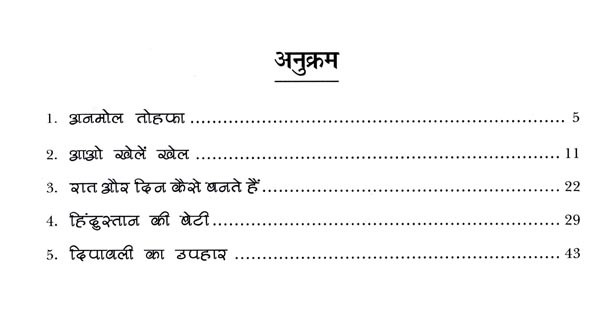 अनुक्रम
1. अनमोल तोहफा ........................................................................ 5
2. आओ खेलें खेल ...................................................................... 11
3. रात और दिन कैसे बनते हैं ......................................................... 22
4. हिंदुस्तान की बेटी .................................................................. 29
5. दिपावली का उपहार ................................................................ 43